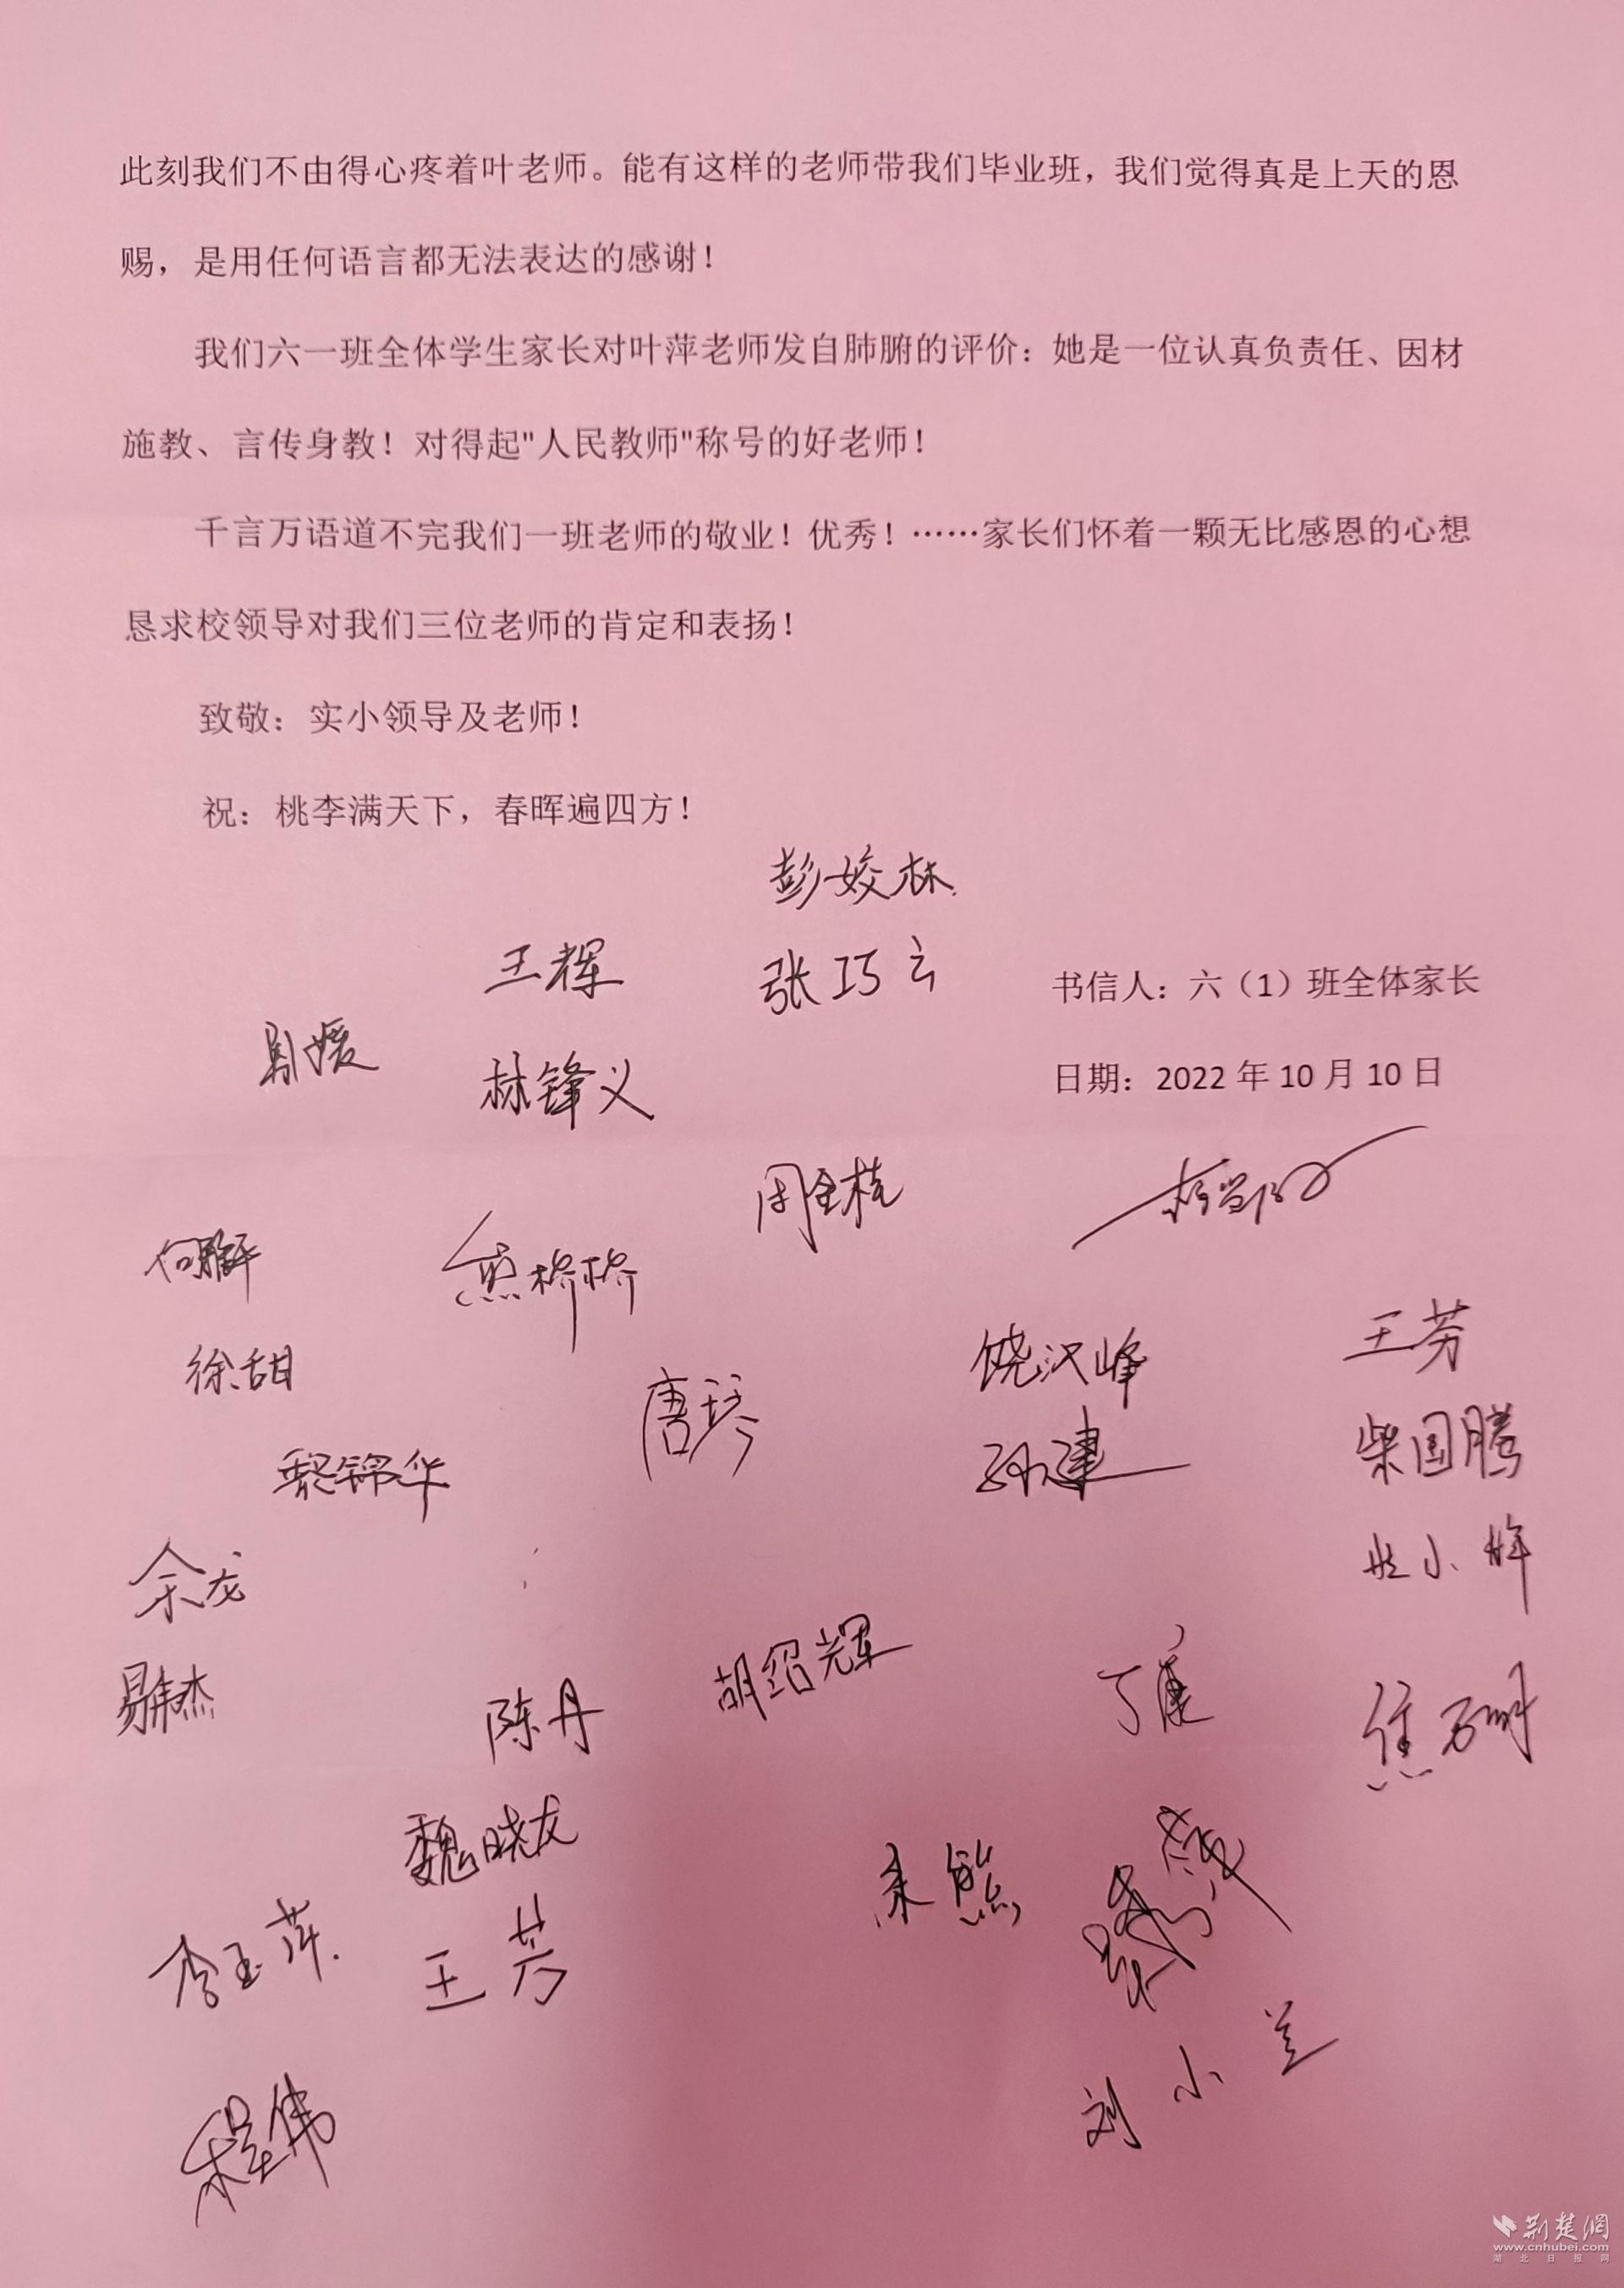 此刻我们不由得心疼着叶老师。能有这样的老师带我们毕业班，我们觉得真是上天的恩
赐，是用任何语言都无法表达的感谢！
我们六一班全体学生家长对叶萍老师发自肺腑的评价：她是一位认真负责任、因材
施教、言传身教！对得起"人民教师"称号的好老师！
千言万语道不完我们一班老师的敬业！优秀！……家长们怀着一颗无比感恩的心想
恳求校领导对我们三位老师的肯定和表扬！
致敬：实小领导及老师！
祝：桃李满天下，春晖遍四方！
彭姣林
王辉
张巧云
书信人：六（1）班全体家长
林锋义
日期：2022年10月10日
周全桂
熊桥桥
徐甜
唐琴
饶汉峰
王芳
黎锦华
孙建
柴国腾
余龙
易伟杰
陈丹
胡绍辉
魏晓龙
余熊
李玉萍
王芳
刘小兰
程伟
荆楚网
www.cnhubei.com
湖北日报网